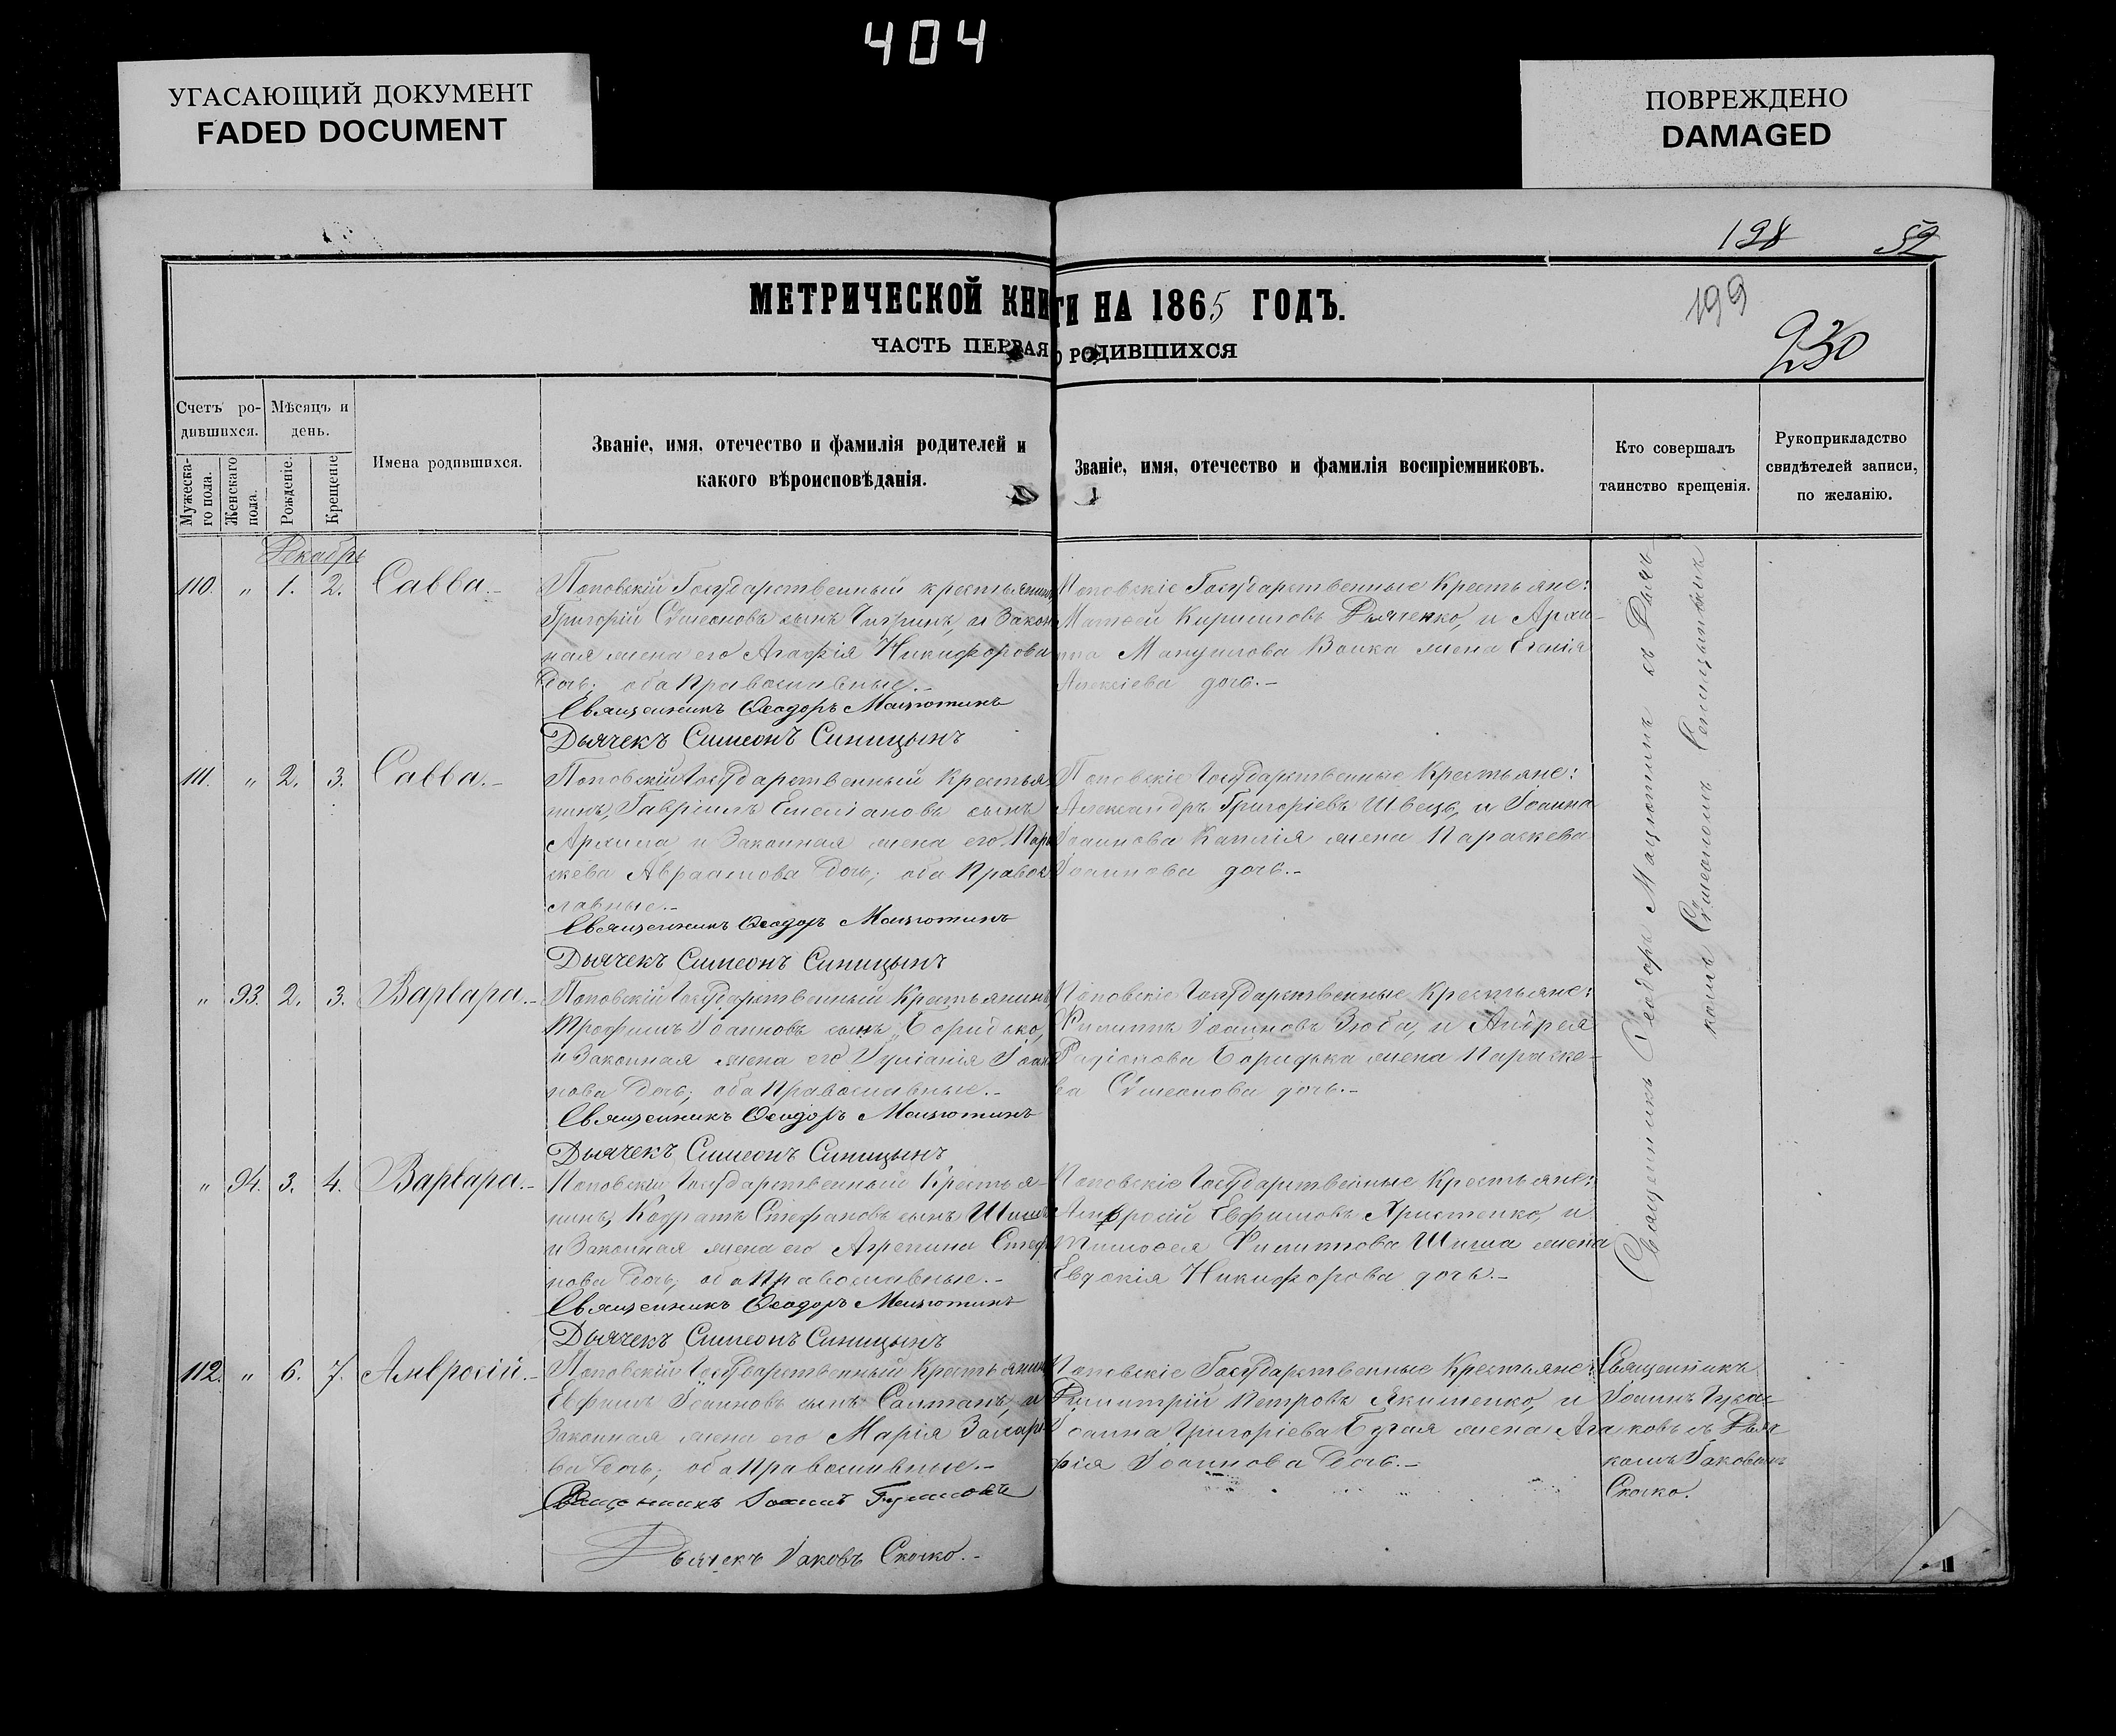 404
УГАСАЮЩИЙ ДОКУМЕНТ
FADED DOCUMENT
ПОВРЕЖДЕНО
DAMAGED
198 52
МЕТРИЧЕСКОЙ КНИГИ НА 1865 ГОДЪ.
199
230
ЧАСТЬ ПЕРВАЯ О РОДИВШИХСЯ
Счетъ ро-
дившихся.
Мужеска-
го пола.
Женскаго
пола.
Мѣсяцъ и
день.
Рожденіе.
Крещеніе
Имена родившихся.
Званіе, имя, отечество и фамилія родителей и
какого вѣроисповѣданія.
Званіе, имя, отечество и фамилія воспріемниковъ.
Кто совершалъ
таинство крещенія.
Рукоприкладство
свидѣтелей записи,
по желанію.
Декабрь
110. " 1. 2. Савва.-
Поповскій Государственный крестьянинъ,
Григорій Сѵмеоновъ сынъ и Закон
ная жена его Агафія Никифорова
Дочь; оба Православные.-
Священникъ Ѳеодоръ Мацютинъ
Дьячекъ Симеонъ Синицынъ
Поповскіе Государственные Крестьяне:
Матѳей Кирилловъ Дьяченко, и Архи-
ппа Мануилова Вовка жена Евгенія
Алексіева дочь.-
111. " 2. 3. Савва.-
Поповскій Государственный Крестья
нинъ, Гавріилъ Емеліановъ сынъ
и Законная жена его Пара
скева Авраамова Дочь; оба Правос
лавные.-
Священникъ Ѳеодоръ Мацютинъ
Дьячекъ Симеонъ Синицынъ
Поповскіе Государственные Крестьяне:
Александръ Григоріевъ Швецъ, и Іоанна
Іоаннова жена Параскева
Іоаннова дочь.-
" 93. 2. 3. Варвара.-
Поповскій Государственный Крестьянинъ,
Трофимъ Іоанновъ сынъ Боридько,
и Законная жена его Іуліанія Іоан
нова Дочь; оба Православные.-
Священникъ Ѳеодоръ Мацютинъ
Дьячекъ Симеонъ Синицынъ
Поповскіе Государственные Крестьяне:
Филиппъ Іоанновъ Зюба, и Андрея
Радіонова Боридька жена Параске-
ва Сѵмеонова дочь.-
" 94. 3. 4. Варвара.-
Поповскій Государственный Крестья-
нинъ, Кодратъ Стефановъ сынъ
и Законная жена его Агрепина Стефа
нова Дочь; оба Православные.-
Священникъ Ѳеодоръ Мацютинъ
Дьячекъ Симеонъ Синицынъ
Поповскіе Государственные Крестьяне:
Амвросій Евфимовъ Христенко, и
Тимоѳея Филиппова Шиша жена
Евдокія Никифорова дочь.-
Священникъ Ѳеодоръ Мацютинъ съ Дьяч-
комъ Сѵмеономъ Синицынымъ
112. " 6. 7. Амвросій.-
Поповскій Государственный Крестьянинъ
Евфимъ Іоанновъ сынъ Солтанъ, и
Законная жена его Марія Захаріе
ва Дочь; оба Православные.-
Священникъ Іоаннъ
Дьячекъ Іаковъ Скочко.-
Поповскіе Государственные Крестьяне:
Димитрій Петровъ Якименко, и
Іоанна Григоріева Бугая жена Ага
фія Іоаннова Дочь.-
Священникъ
Іоаннъ
ковъ съ Дьяч
комъ Іаковомъ
Скочко.